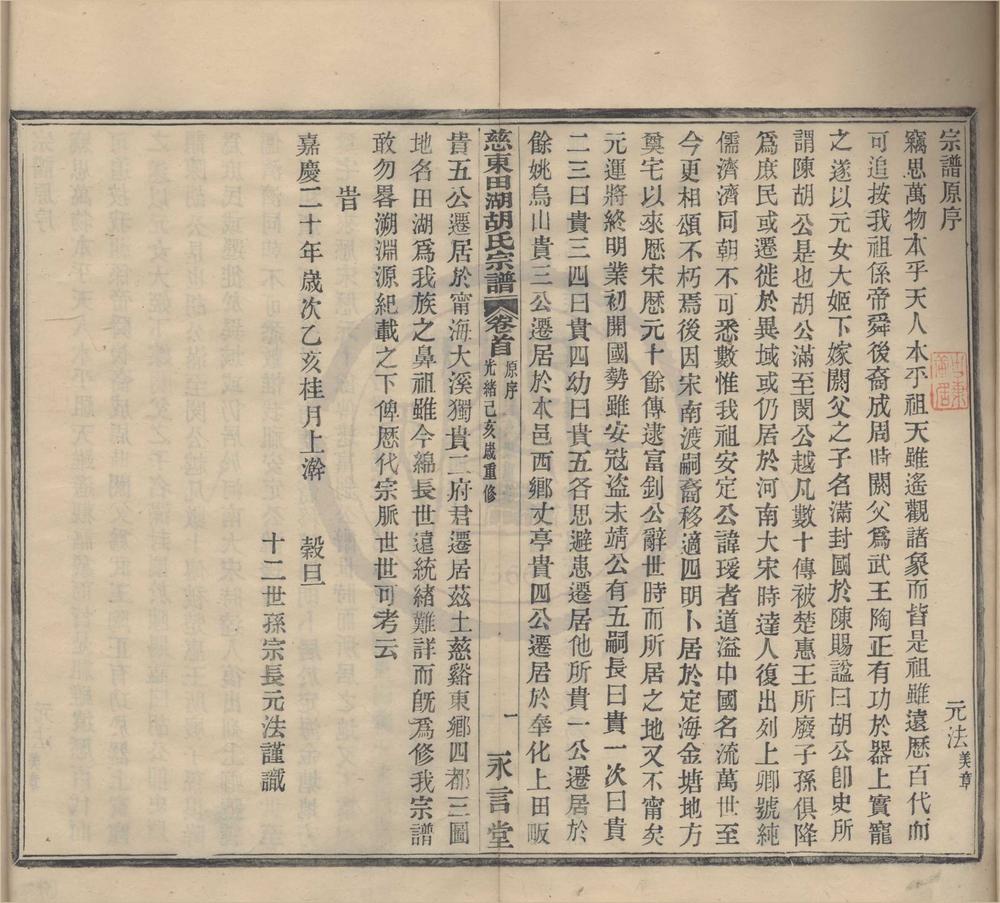 宗譜原序
元法美章
竊思萬物本乎天人本乎祖天雖遙觀諸象而皆是祖雖遠歷百代而
可追按我祖係帝舜後裔成周時閼父爲武王陶正有功於器上實寵
之遂以元女大姬下嫁閼父之子名滿封國於陳賜諡曰胡公卽史所
謂陳胡公是也胡公滿至閔公越凡數十傳被楚惠王所廢子孫俱降
爲庶民或遷徙於異域或仍居於河南大宋時達人復出列上卿號純
儒濟濟同朝不可悉數惟我祖安定公諱瑗者道溢中國名流萬世至
今更相頌不朽焉後因宋南渡嗣裔移適四明卜居於定海金塘地方
奠宅以來歷宋歷元十餘傳逮富釗公辭世時而所居之地又不甯矣
元運將終明業初開國勢雖安冦盜未靖公有五嗣長曰貴一次曰貴
二三曰貴三四曰貴四幼曰貴五各思避患遷居他所貴一公遷居於
餘姚烏山貴三公遷居於本邑西鄉丈亭貴四公遷居於奉化上田畈
慈東田湖胡氏宗譜 卷首 原序 光緒己亥歲重修 一 永言堂
貴五公遷居於甯海大溪獨貴二府君遷居茲土慈谿東鄉四都三圖
地名田湖爲我族之鼻祖雖今綿長世遠統緒難詳而旣爲修我宗譜
敢勿畧溯淵源紀載之下俾歷代宗脈世世可考云
旹
嘉慶二十年歲次乙亥桂月上澣 穀旦
十二世孫宗長元法謹識